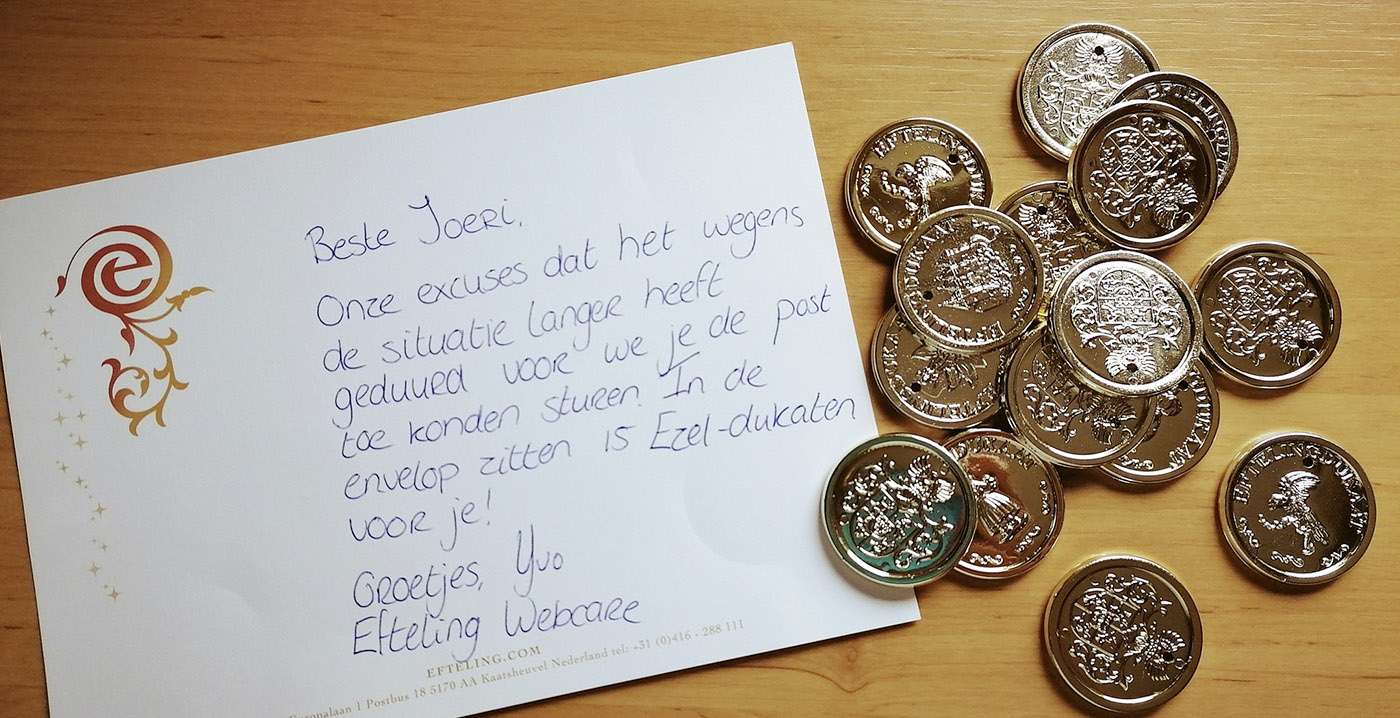 Beste Joeri,
Onze excuses dat het wegens
de situatie langer heeft
geduurd voor we je de post
toe konden sturen. In de
envelop zitten 15 Ezel-dukaten
voor je!
Groetjes, Yvo
Efteling Webcare
EFTELING.COM
1 Postbus 18 5170 AA Kaatsheuvel Nederland tel: +31 (0)416 - 288 111
e
EFTELINGDUKAAT
EFTELINGDUKAAT
EFTELINGDUKAAT